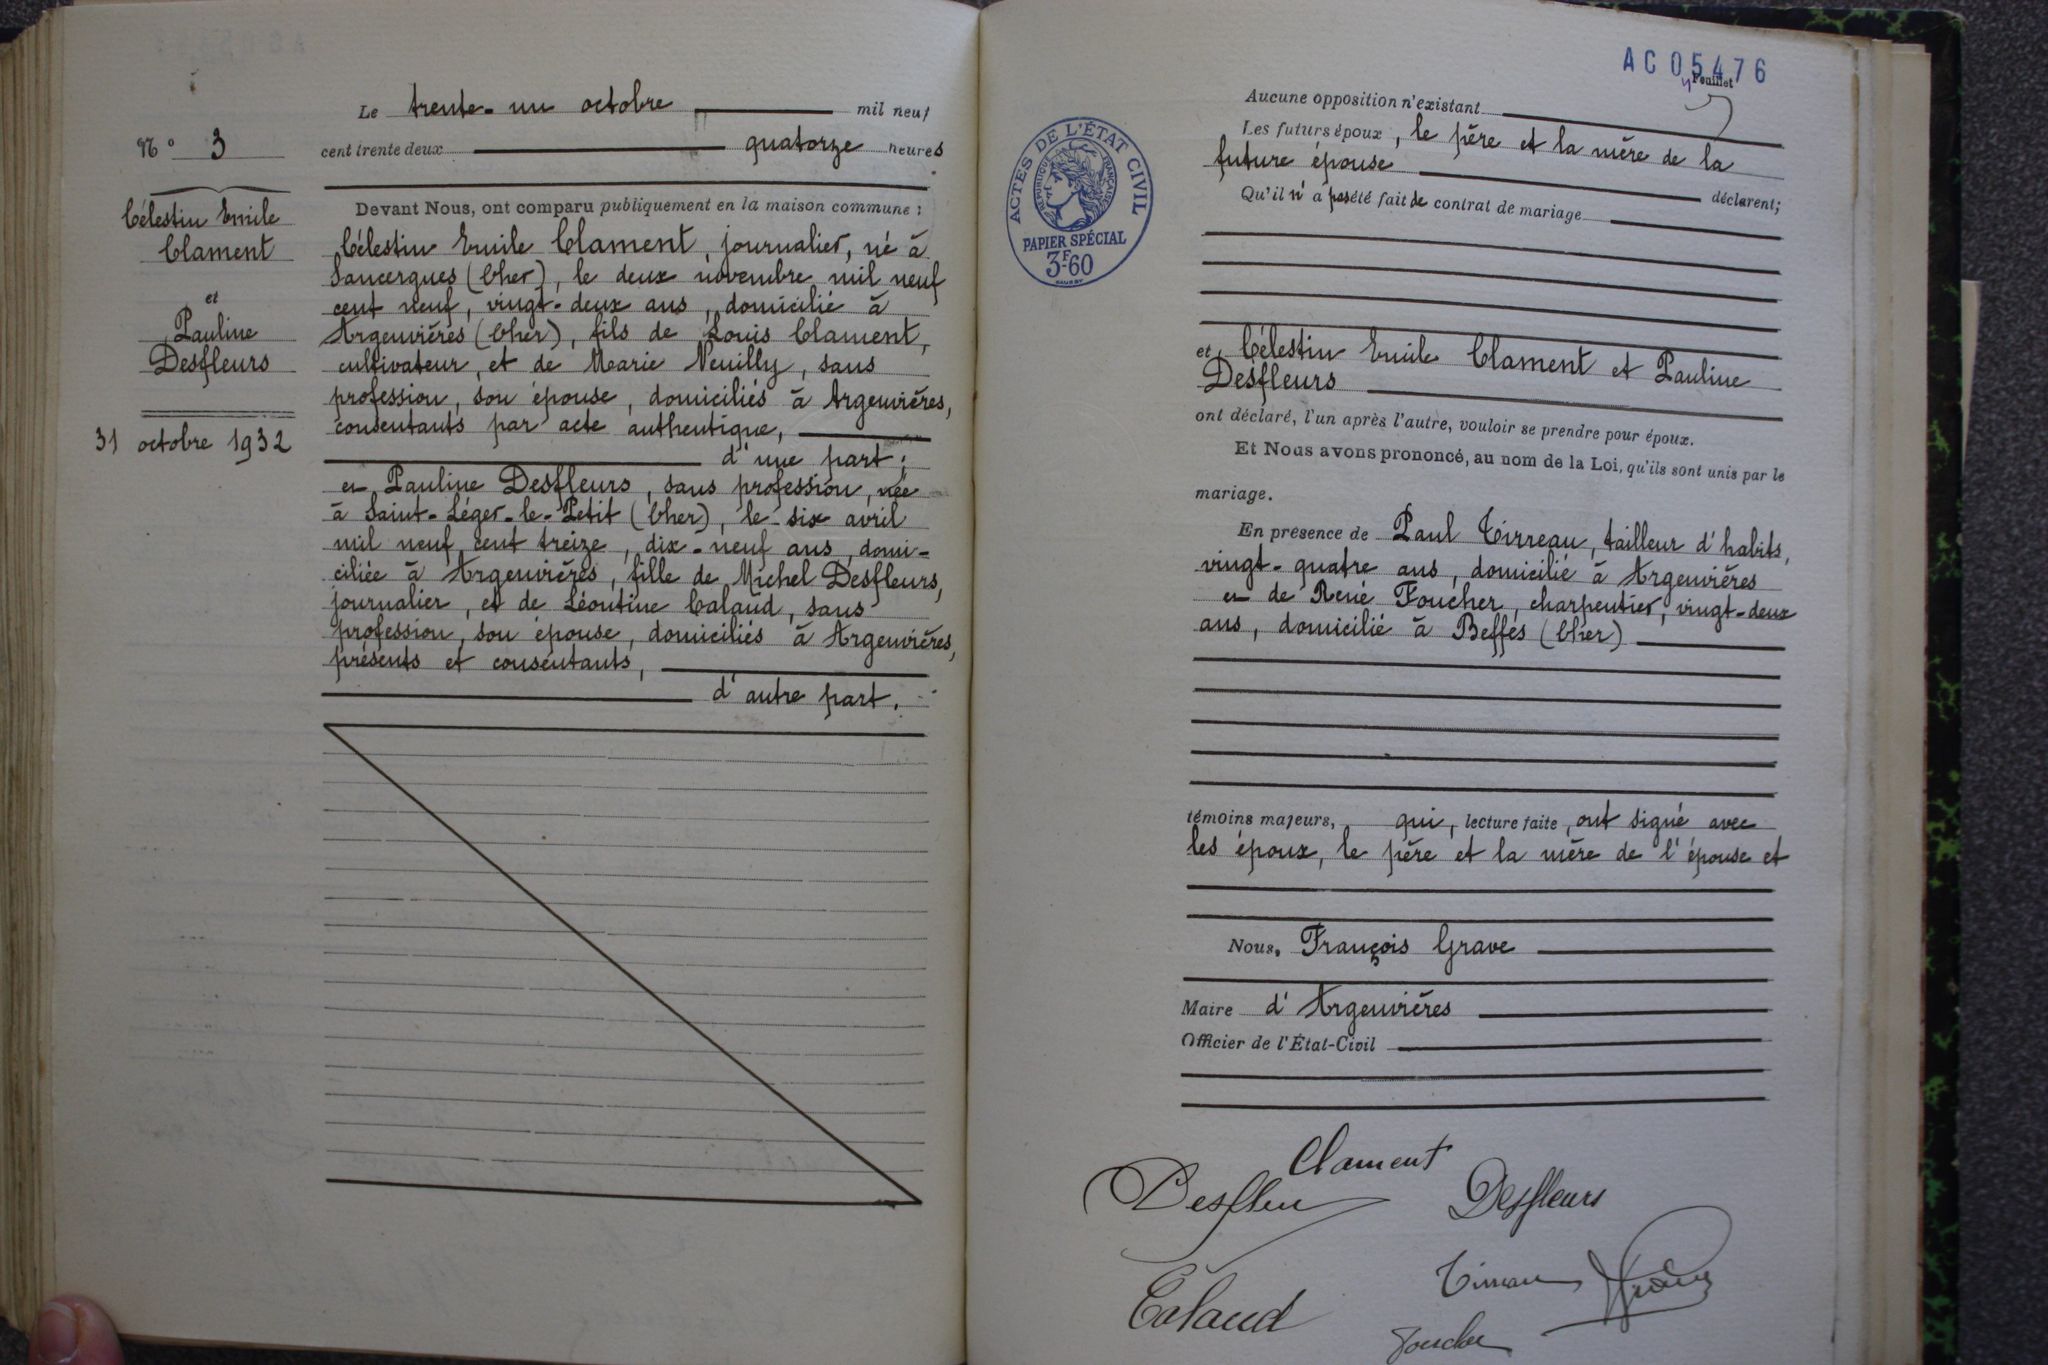 Le trente-un octobre mil neuf
cent trente deux quatorze heures
N° 3
Célestin Emile
Clament
et
Pauline
Desfleurs
31 octobre 1932
Devant Nous, ont comparu publiquement en la maison commune :
Célestin Emile Clament, journalier, né à
Sancergues (Cher), le deux novembre mil neuf
cent neuf, vingt-deux ans, domicilié à
Argenvières (Cher), fils de Louis Clament,
cultivateur, et de Marie Neuilly, sans
profession, son épouse, domiciliés à Argenvières,
consentants par acte authentique,
d'une part ;
et Pauline Desfleurs, sans profession, née
à Saint-Léger-le-Petit (Cher), le six avril
mil neuf cent treize, dix-neuf ans, domi-
ciliée à Argenvières, fille de Michel Desfleurs,
journalier, et de Léontine Calaud, sans
profession, son épouse, domiciliés à Argenvières,
présents et consentants,
d'autre part.
AC 05476
Feuillet
Aucune opposition n'existant
Les futurs époux, le père et la mère de la
future épouse
déclarent;
Qu'il n'a pas été fait de contrat de mariage
ACTES DE L'ÉTAT CIVIL
RÉPUBLIQUE FRANÇAISE
PAPIER SPÉCIAL
3F60
et Célestin Emile Clament et Pauline
Desfleurs
ont déclaré, l'un après l'autre, vouloir se prendre pour époux.
Et Nous avons prononcé, au nom de la Loi, qu'ils sont unis par le
mariage.
En présence de Paul Tirreau, tailleur d'habits,
vingt-quatre ans, domicilié à Argenvières
et de René Foucher, charpentier, vingt-deux
ans, domicilié à Beffes (Cher)
témoins majeurs, qui, lecture faite, ont signé avec
les époux, le père et la mère de l'épouse et
Nous, François Grave
Maire d'Argenvières
Officier de l'État-Civil
Clament
Desfleu Desfleurs
Calaud
Foucher